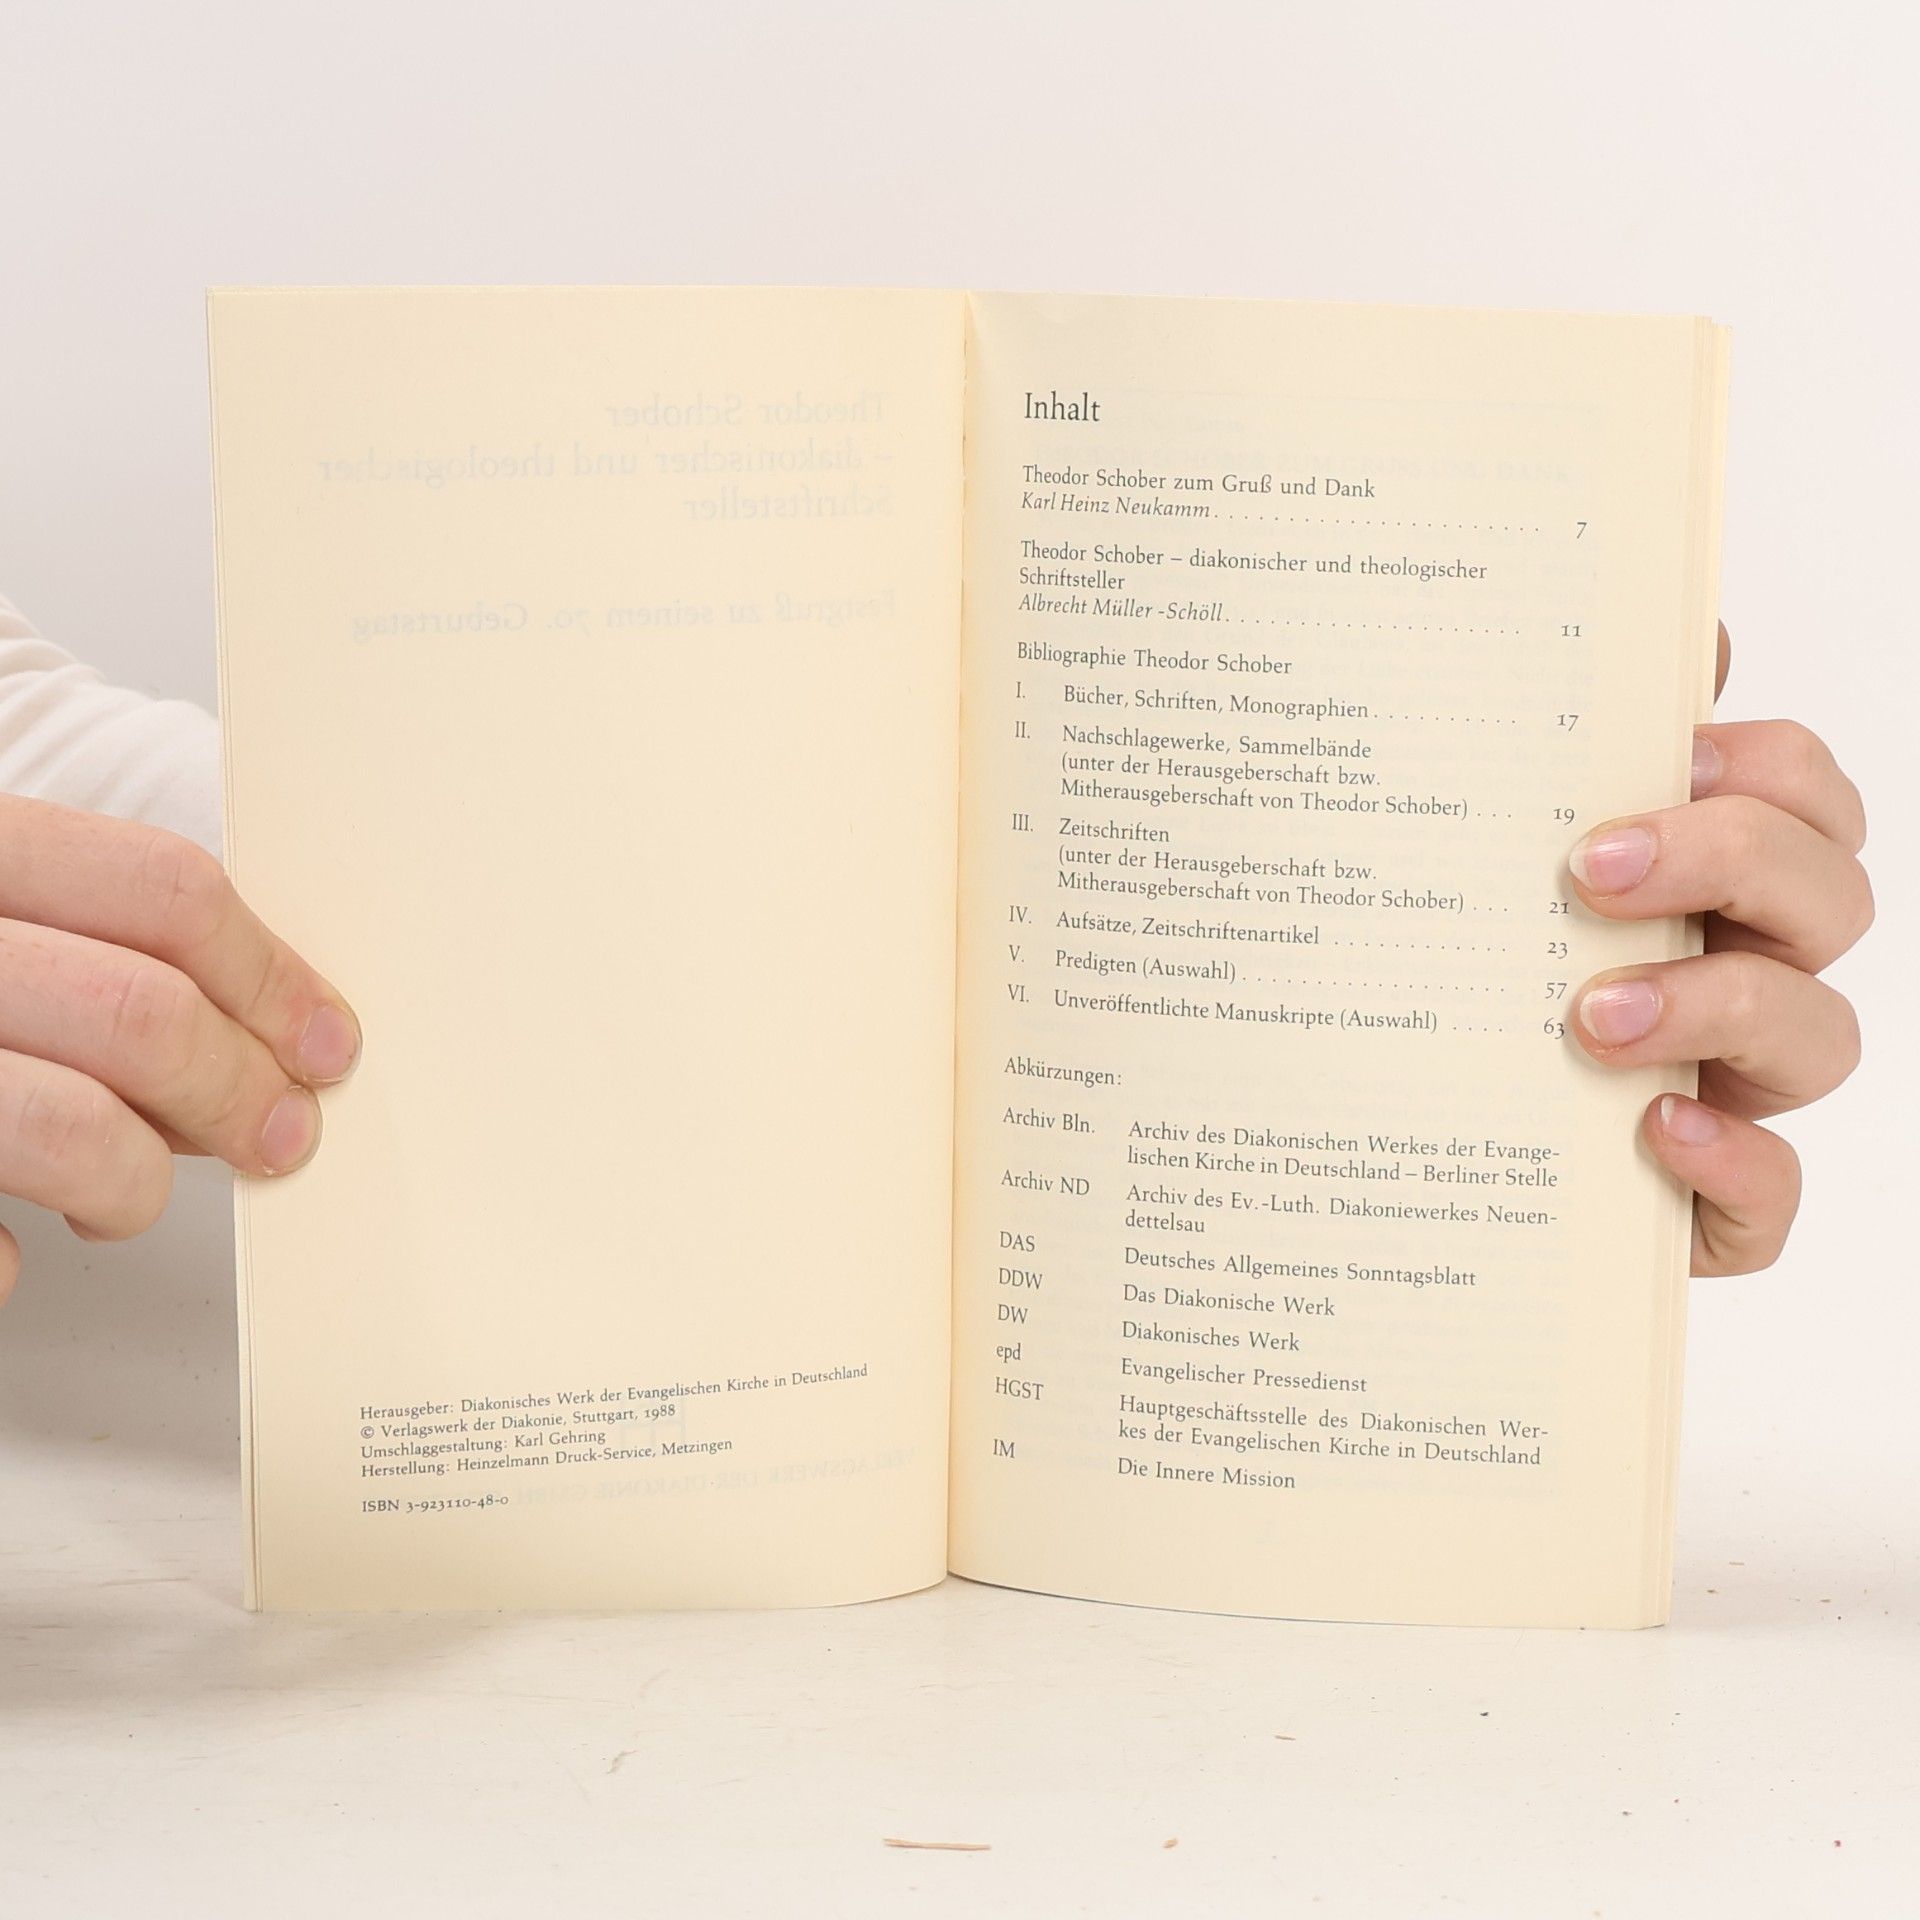 Theodor Schober
– diakonischer und theologischer
Schriftsteller
Festgruß zu seinem 70. Geburtstag
Herausgeber: Diakonisches Werk der Evangelischen Kirche in Deutschland
© Verlagswerk der Diakonie, Stuttgart, 1988
Umschlaggestaltung: Karl Gehring
Herstellung: Heinzelmann Druck-Service, Metzingen
ISBN 3-923110-48-0
Inhalt
Theodor Schober zum Gruß und Dank
Karl Heinz Neukamm. . . . . . . . . . . . . . . . . . . . . . . 7
Theodor Schober – diakonischer und theologischer
Schriftsteller
Albrecht Müller -Schöll. . . . . . . . . . . . . . . . . . . . 11
Bibliographie Theodor Schober
I. Bücher, Schriften, Monographien. . . . . . . . . . 17
II. Nachschlagewerke, Sammelbände
(unter der Herausgeberschaft bzw.
Mitherausgeberschaft von Theodor Schober) . . . 19
III. Zeitschriften
(unter der Herausgeberschaft bzw.
Mitherausgeberschaft von Theodor Schober) . . . 21
IV. Aufsätze, Zeitschriftenartikel . . . . . . . . . . . . 23
V. Predigten (Auswahl) . . . . . . . . . . . . . . . . . . 57
VI. Unveröffentlichte Manuskripte (Auswahl) . . . . 63
Abkürzungen:
Archiv Bln. Archiv des Diakonischen Werkes der Evange-
lischen Kirche in Deutschland – Berliner Stelle
Archiv ND Archiv des Ev.-Luth. Diakoniewerkes Neuen-
dettelsau
DAS Deutsches Allgemeines Sonntagsblatt
DDW Das Diakonische Werk
DW Diakonisches Werk
epd Evangelischer Pressedienst
HGST Hauptgeschäftsstelle des Diakonischen Wer-
kes der Evangelischen Kirche in Deutschland
IM Die Innere Mission